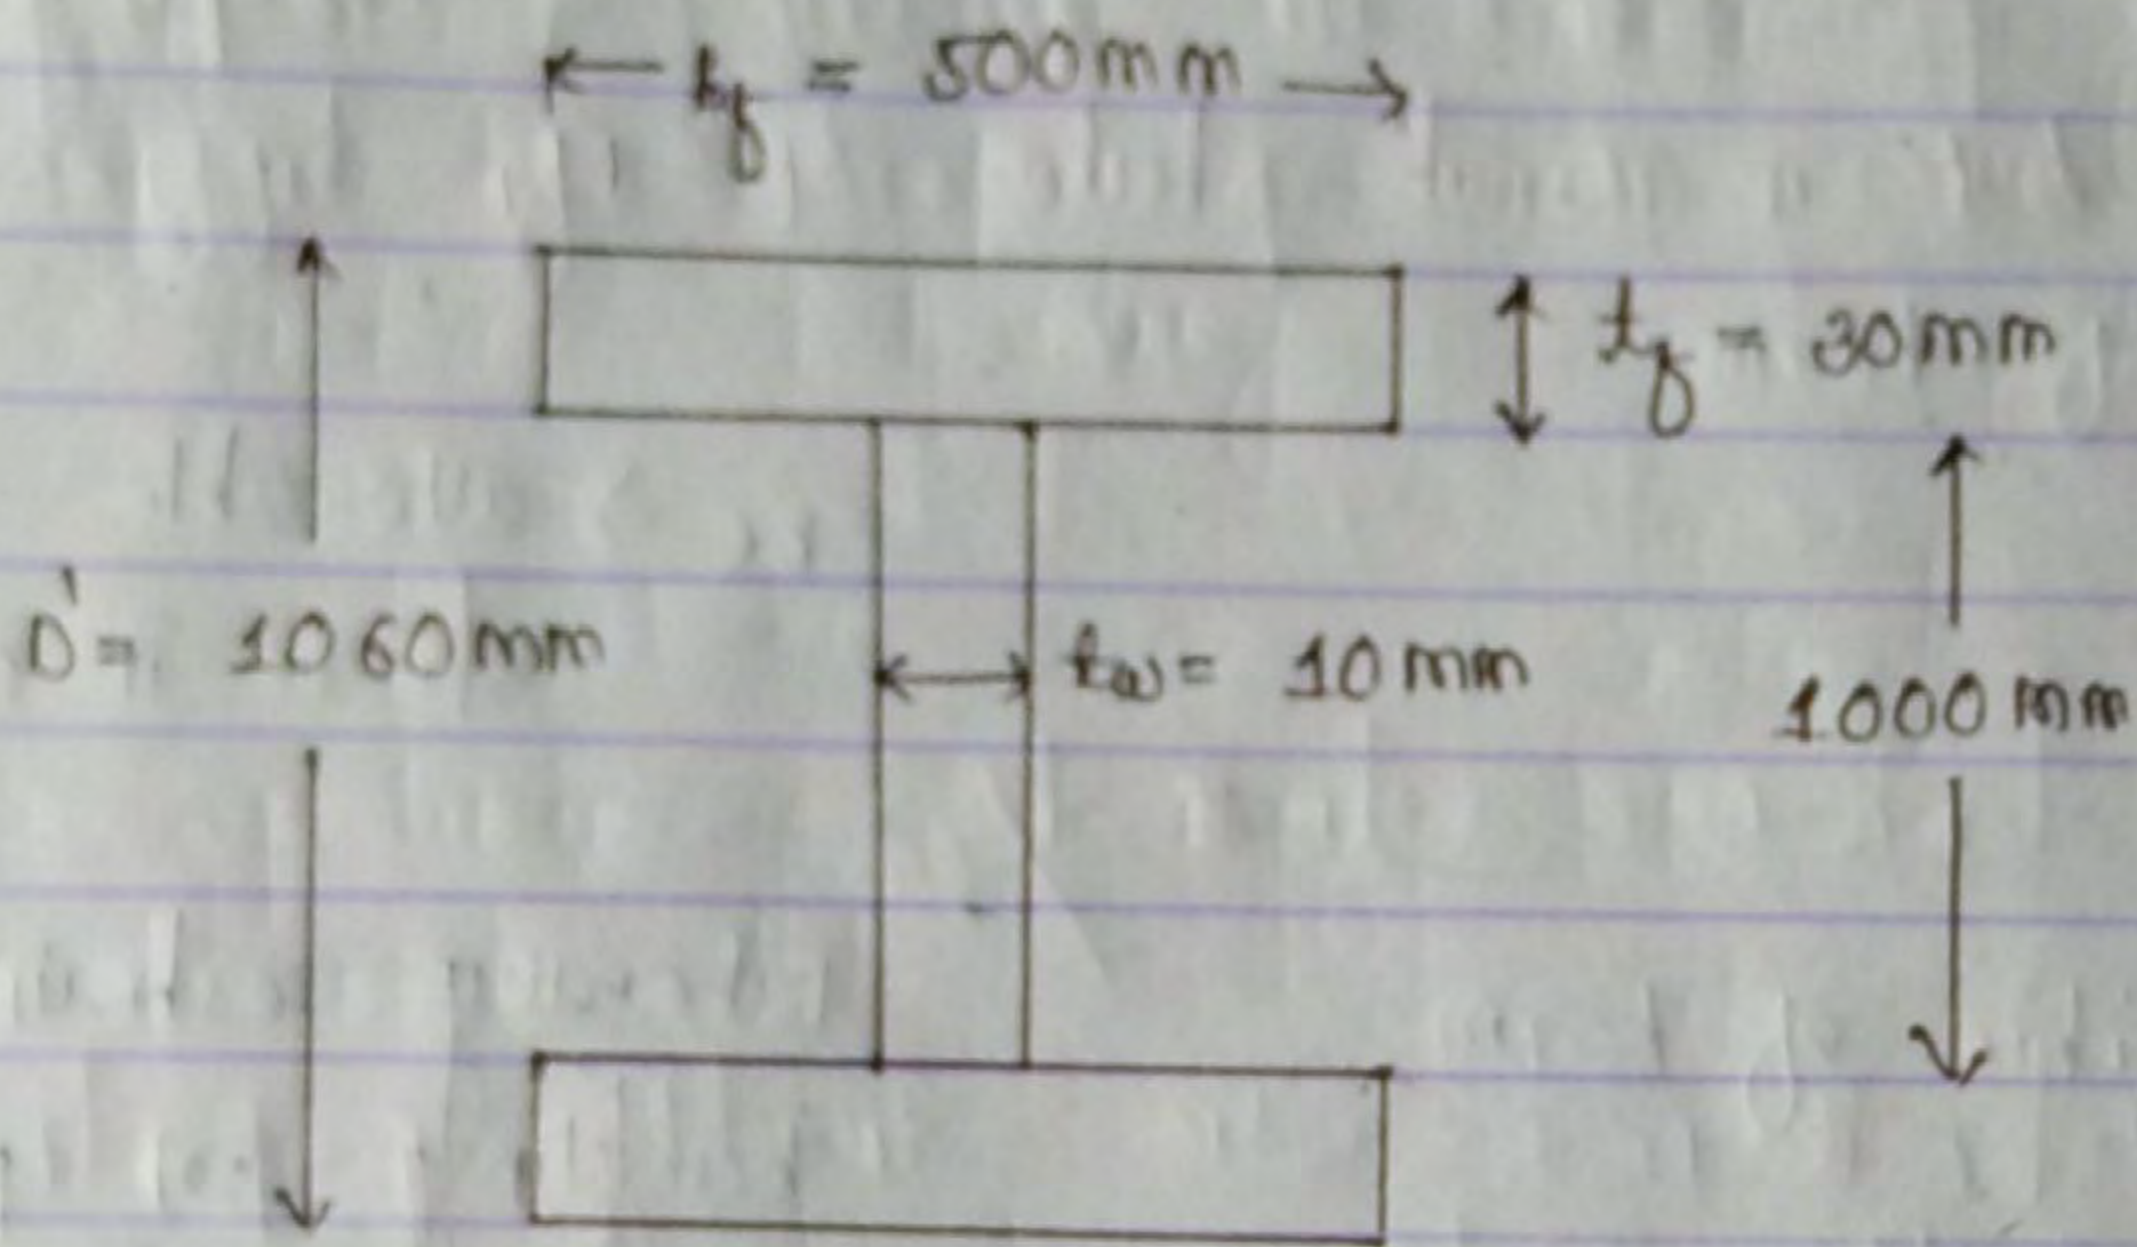 bf = 500mm
tf = 30mm
D' = 1060mm
tw = 10mm
1000mm